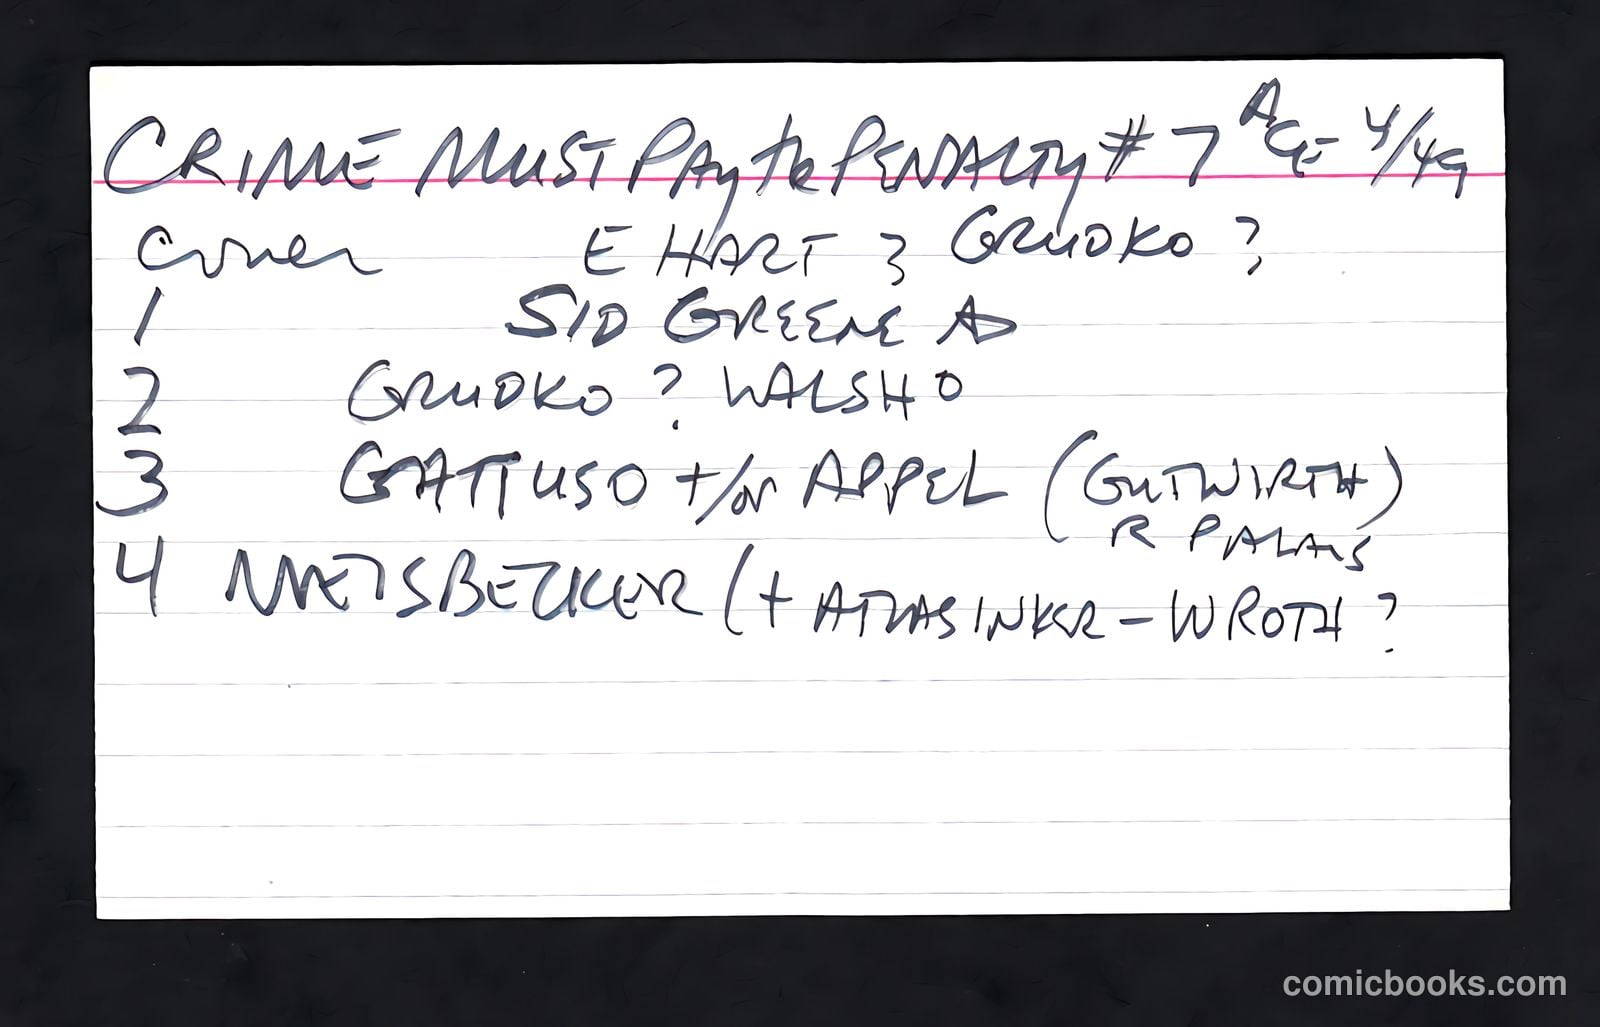 CRIME MUST PAY the PENALTY # 7 ACE 4/49
Cover E HART & GRUDKO ?
1 SID GREENE
2 GRUDKO ? WALSH O
3 GATTUSO +/or APPEL (GUTWIRTH)
R PALAIS
4 (+ ATLAS INKER - W ROTH ?
comicbooks.com